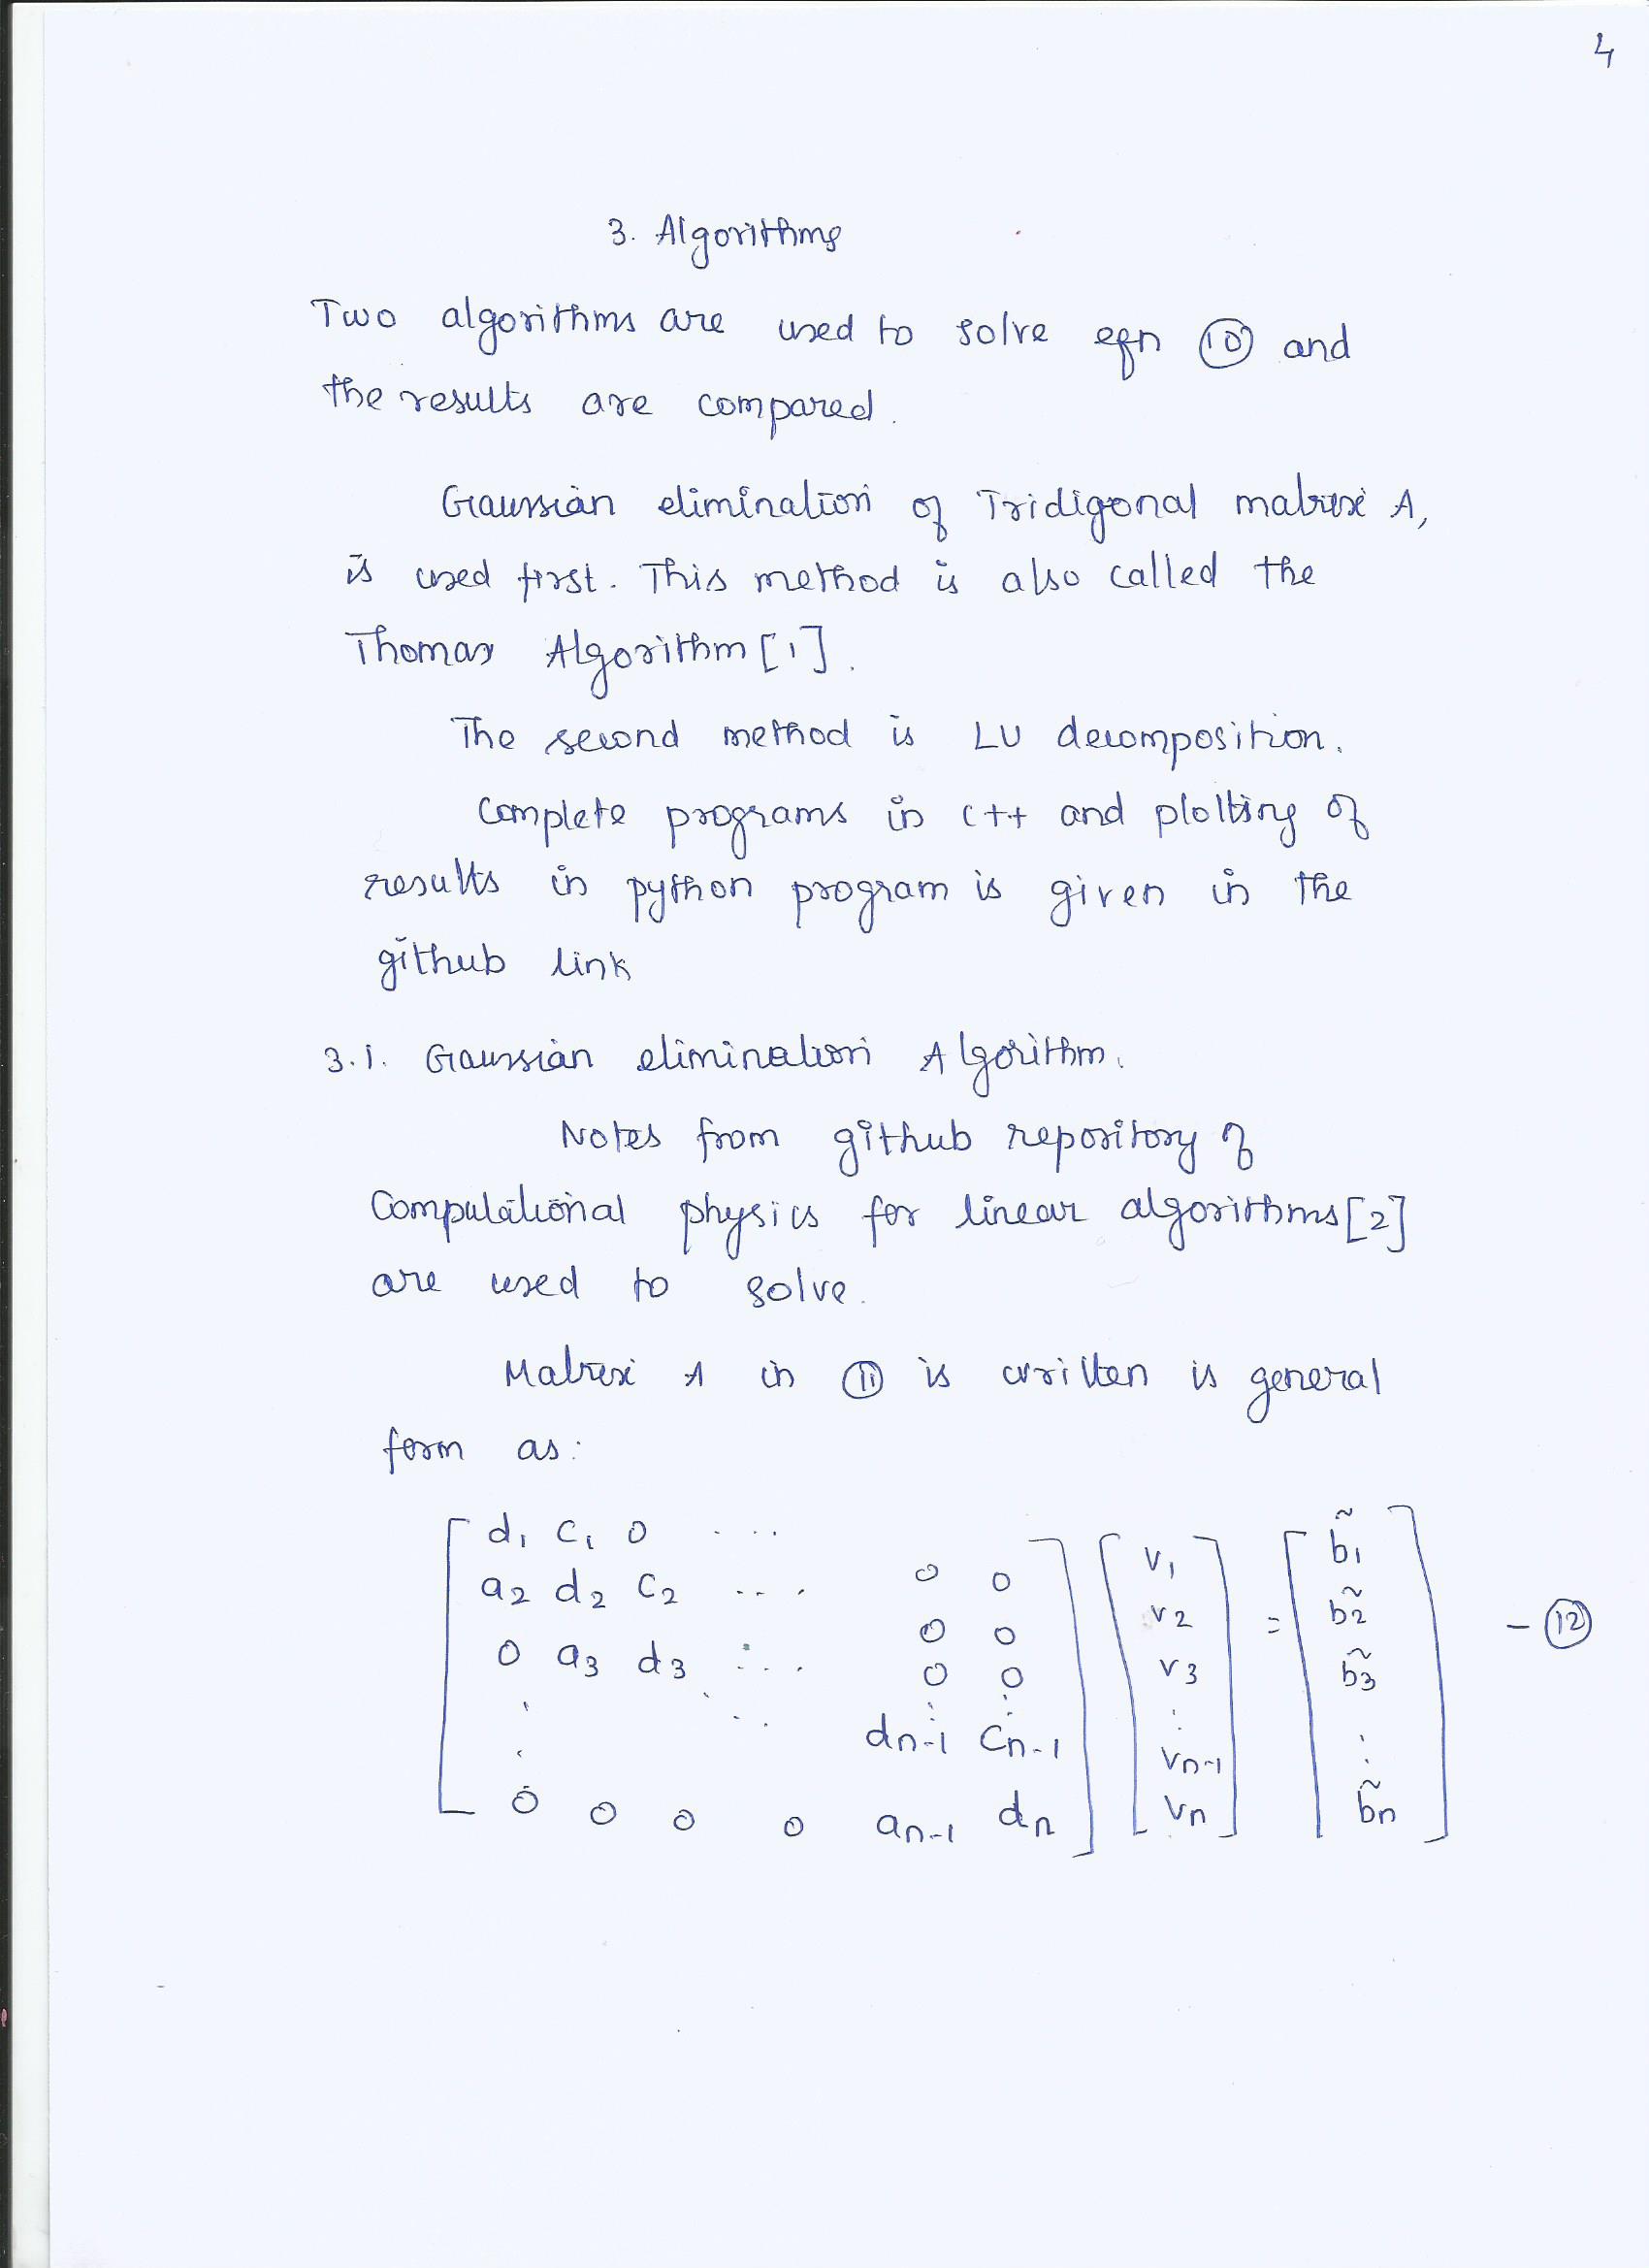 4
3. Algorithms
Two algorithms are used to solve eqn ⑩ and
the results are compared.
Gaussian elimination of Tridigonal matrix A,
is used first. This method is also called the
Thomas Algorithm [1].
The second method is LU decomposition.
Complete programs in C++ and plotting of
results in python program is given in the
github link
3.1. Gaussian elimination Algorithm.
Notes from github repository of
Computational physics for linear algorithms [2]
are used to solve.
Matrix A in ⑪ is written is general
form as:
[ d1 c1 0 ... 0 0 ] [ v1 ] = [ b̃1 ]
[ a2 d2 c2 ... 0 0 ] [ v2 ] [ b̃2 ] - ⑫
[ 0 a3 d3 ... 0 0 ] [ v3 ] [ b̃3 ]
[ : ... dn-1 cn-1 ] [ vn-1 ] [ : ]
[ 0 0 0 0 an-1 dn ] [ vn ] [ b̃n ]